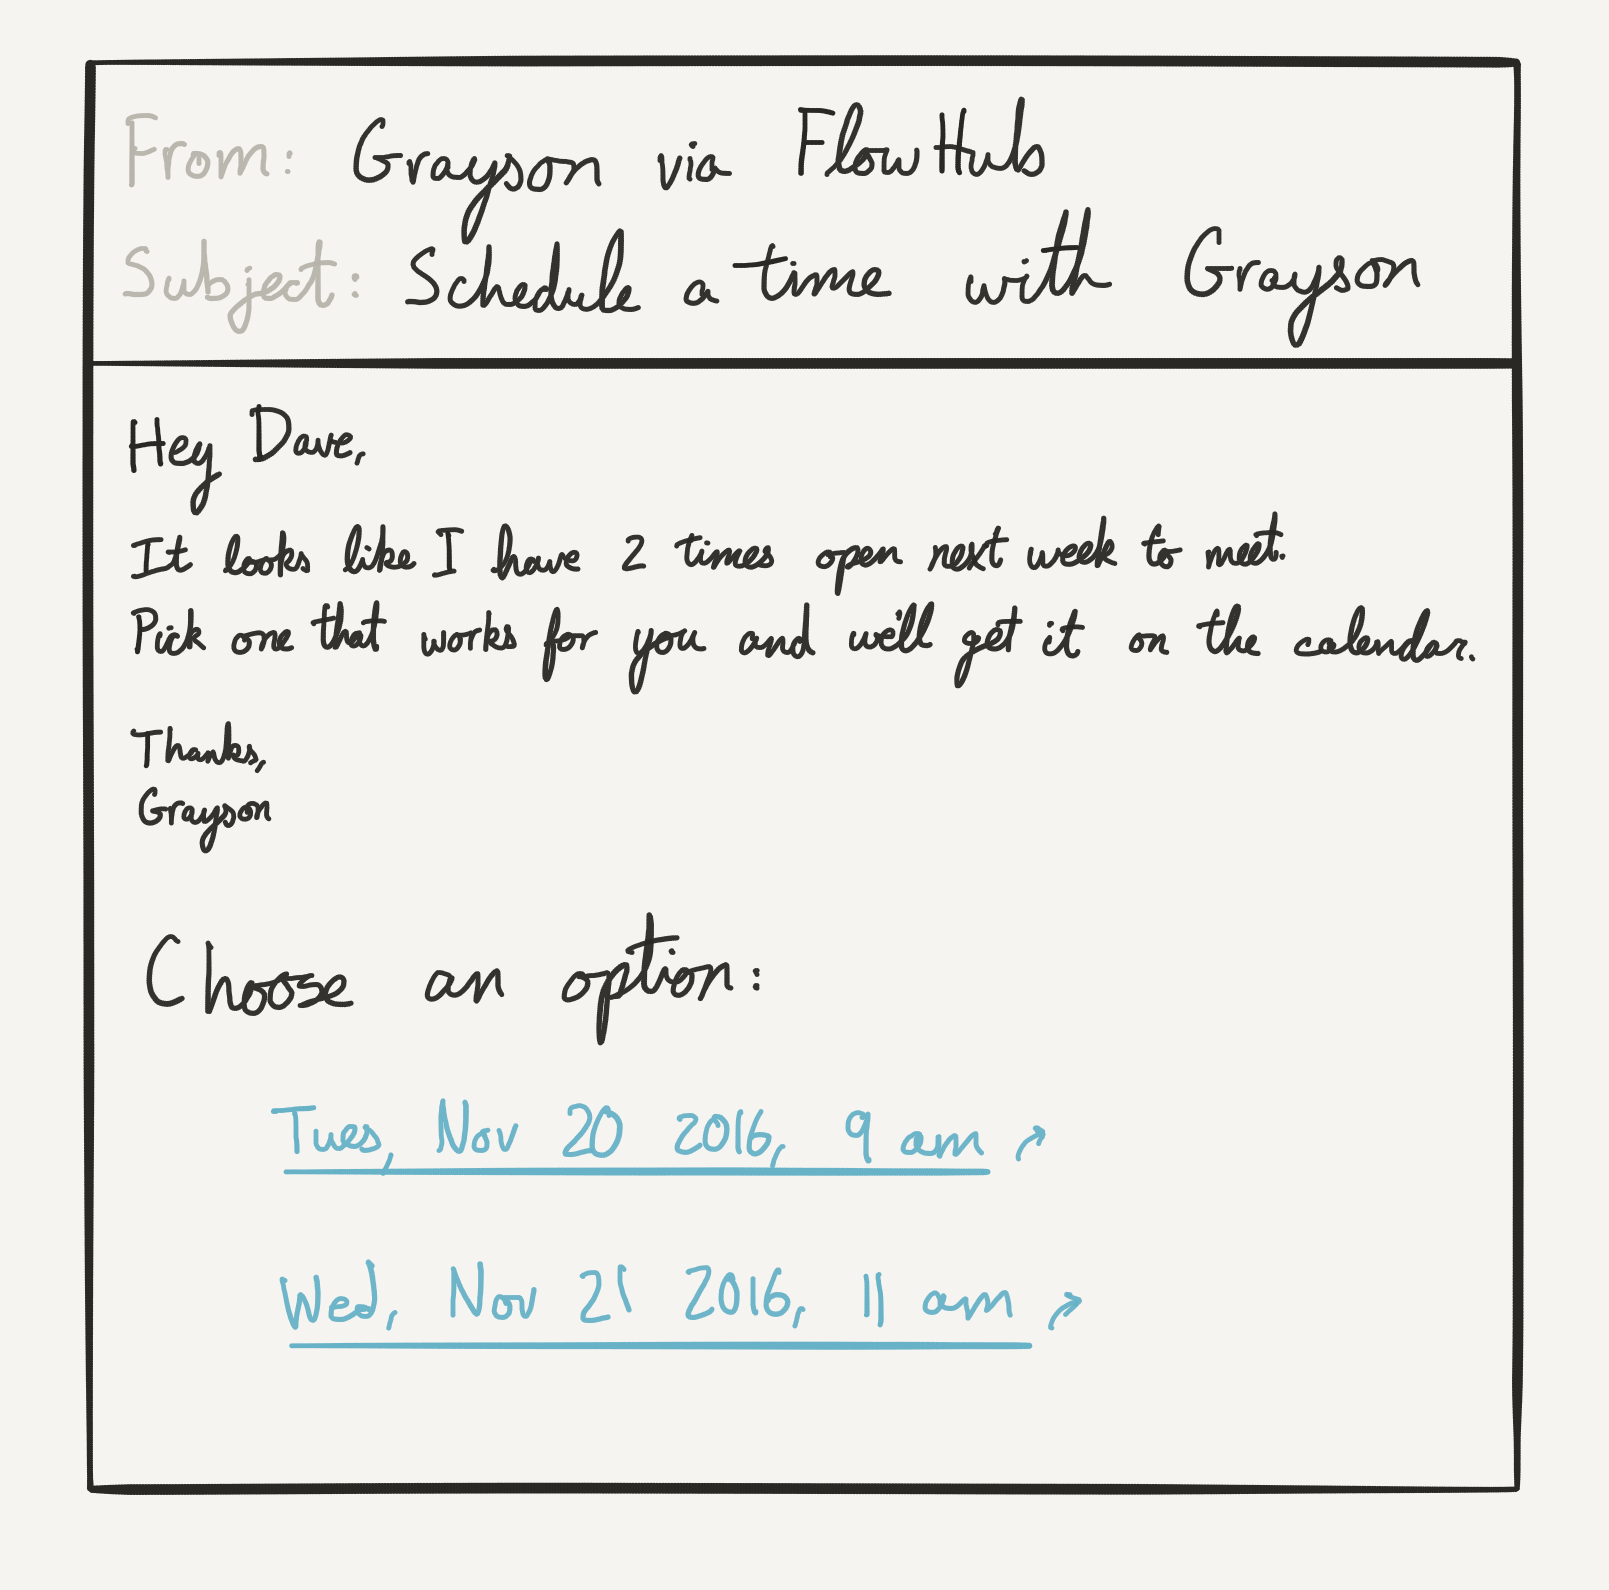 From: Grayson via FlowHub
Subject: Schedule a time with Grayson
Hey Dave,
It looks like I have 2 times open next week to meet.
Pick one that works for you and we'll get it on the calendar.
Thanks,
Grayson
Choose an option:
Tues, Nov 20 2016, 9 am ↗
Wed, Nov 21 2016, 11 am ↗